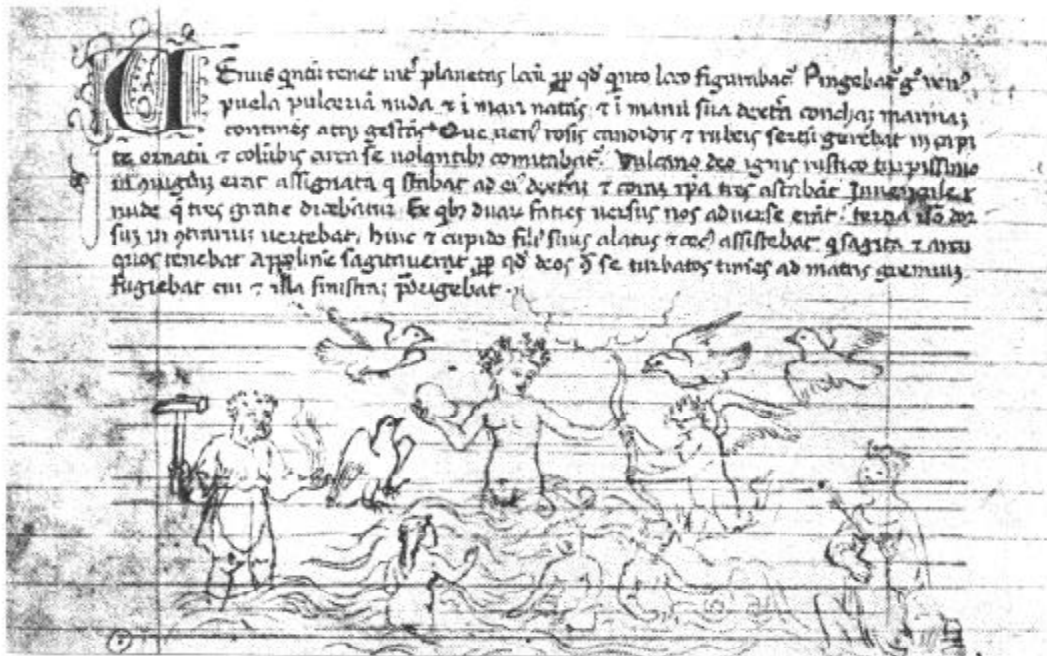 VEnus q̄ntū tenet int̄ planetas locū ꝓp qd̄ q̄nto loco figurabat᷑. Pingebat᷑ g̊ venꝰ
puela pulceriā nuda ⁊ ī mari natās ⁊ ī manū sua dextrā conchaʒ marinaʒ
continēs atqʒ gestās Que venꝰ rosis candidis ⁊ rubeis sertū gerebat in capi
te ornatū ⁊ colūbis circa se uolantibʒ comitabat᷑. Vulcano deo ignis rustico turpissimo
in ꝯiugiū erat assignata q stabat ad eiꝰ dextrā ⁊ coraʒ ip̄a tres astabāt Iuuencule
nude q̄ tres gratie dicebātur Ex qbʒ duaꝝ facies uersus nos aduerse erāt. tertia ūo dor
suʒ in ꝯtrariuʒ uertebat. huic ⁊ cupido filiꝰ suus alatus ⁊ cecꝰ assistebat q sagita ⁊ arcu
quos tenebat Appolinē sagitauerat ꝓp qd̄ deos ꝯ̄ se turbatos timēs ad matris gremiuʒ
fugiebat cui ⁊ illa sinistraʒ porrigebat.